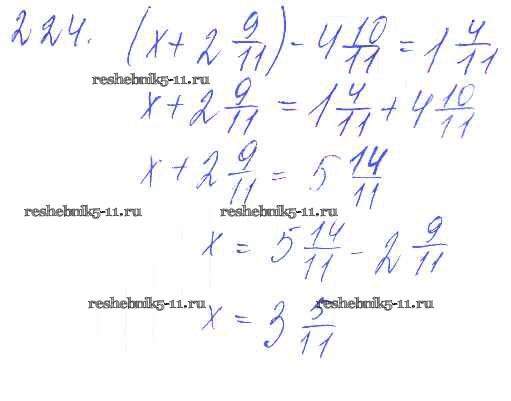 224. (x + 2 9/11) - 4 10/11 = 1 4/11
reshebnik5-11.ru
x + 2 9/11 = 1 4/11 + 4 10/11
x + 2 9/11 = 5 14/11
reshebnik5-11.ru reshebnik5-11.ru
x = 5 14/11 - 2 9/11
reshebnik5-11.ru reshebnik5-11.ru
x = 3 5/11